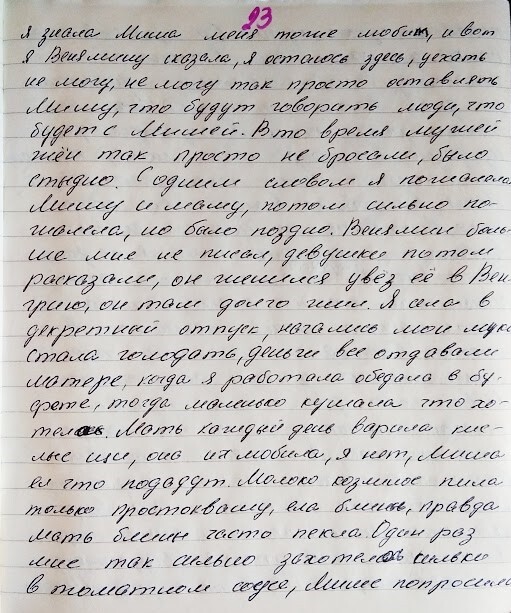 23
я знала Миша меня тоже любит, и вот
я Венямину сказала, я остаюсь здесь, уехать
не могу, не могу так просто оставлять
Мишу, что будут говорить люди, что
будет с Мишей. В то время мужей
жён так просто не бросали, было
стыдно. Содним словом я пожалела
Мишу и маму, потом сильно по-
жалела, но было поздно. Венямин боль-
ше мне не писал, девушки потом
расказали, он женился увёз её в Вен-
грию, он там долго жил. Я села в
декретный отпуск, начались мои муки
стала голодать, деньги все отдавали
матере, когда я работала обедала в бу-
фете, тогда маленько кушала что хо-
телось. Мать каждый день варила кис-
лые щи, она их любила, я нет, Миша
ел что подадут. Молоко козлиное пила
только простоквашу, ела блины, правда
мать блины часто пекла. Один раз
мне так сильно захотелось кильки
в томатном соусе, Мише попросила